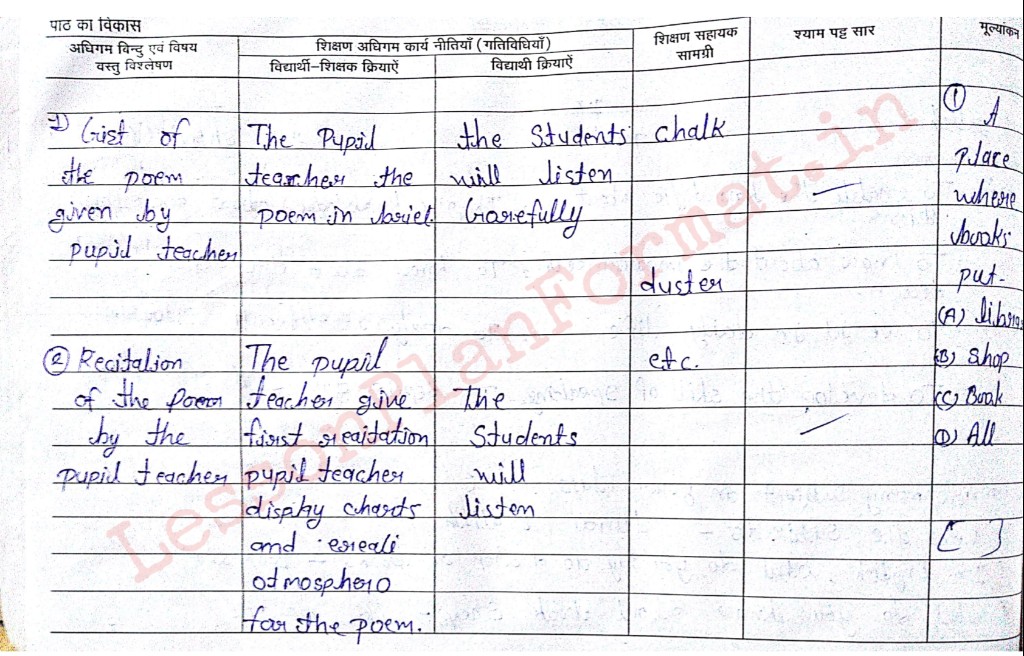 पाठ का विकास
अधिगम विन्दु एवं विषय वस्तु विश्लेषण
शिक्षण अधिगम कार्य नीतियाँ (गतिविधियाँ)
विद्यार्थी–शिक्षक क्रियाऐं
विद्यार्थी क्रियाऐं
शिक्षण सहायक सामग्री
श्याम पट्ट सार
मूल्यांकन
1) Gist of
the poem
given by
pupil teacher
The Pupil
teacher the
poem in brief.
the Students
will listen
Carefully
chalk
duster
etc.
① A
place
where
books
put-
(A)
(B) Shop
(C) Book
(D) All
[ ]
② Recitation
of the Poem
by the
pupil teacher
The pupil
teacher give
first reaitation
pupil teacher
display charts
and
for the poem.
The
Students
will
listen
LessonPlanFormat.in